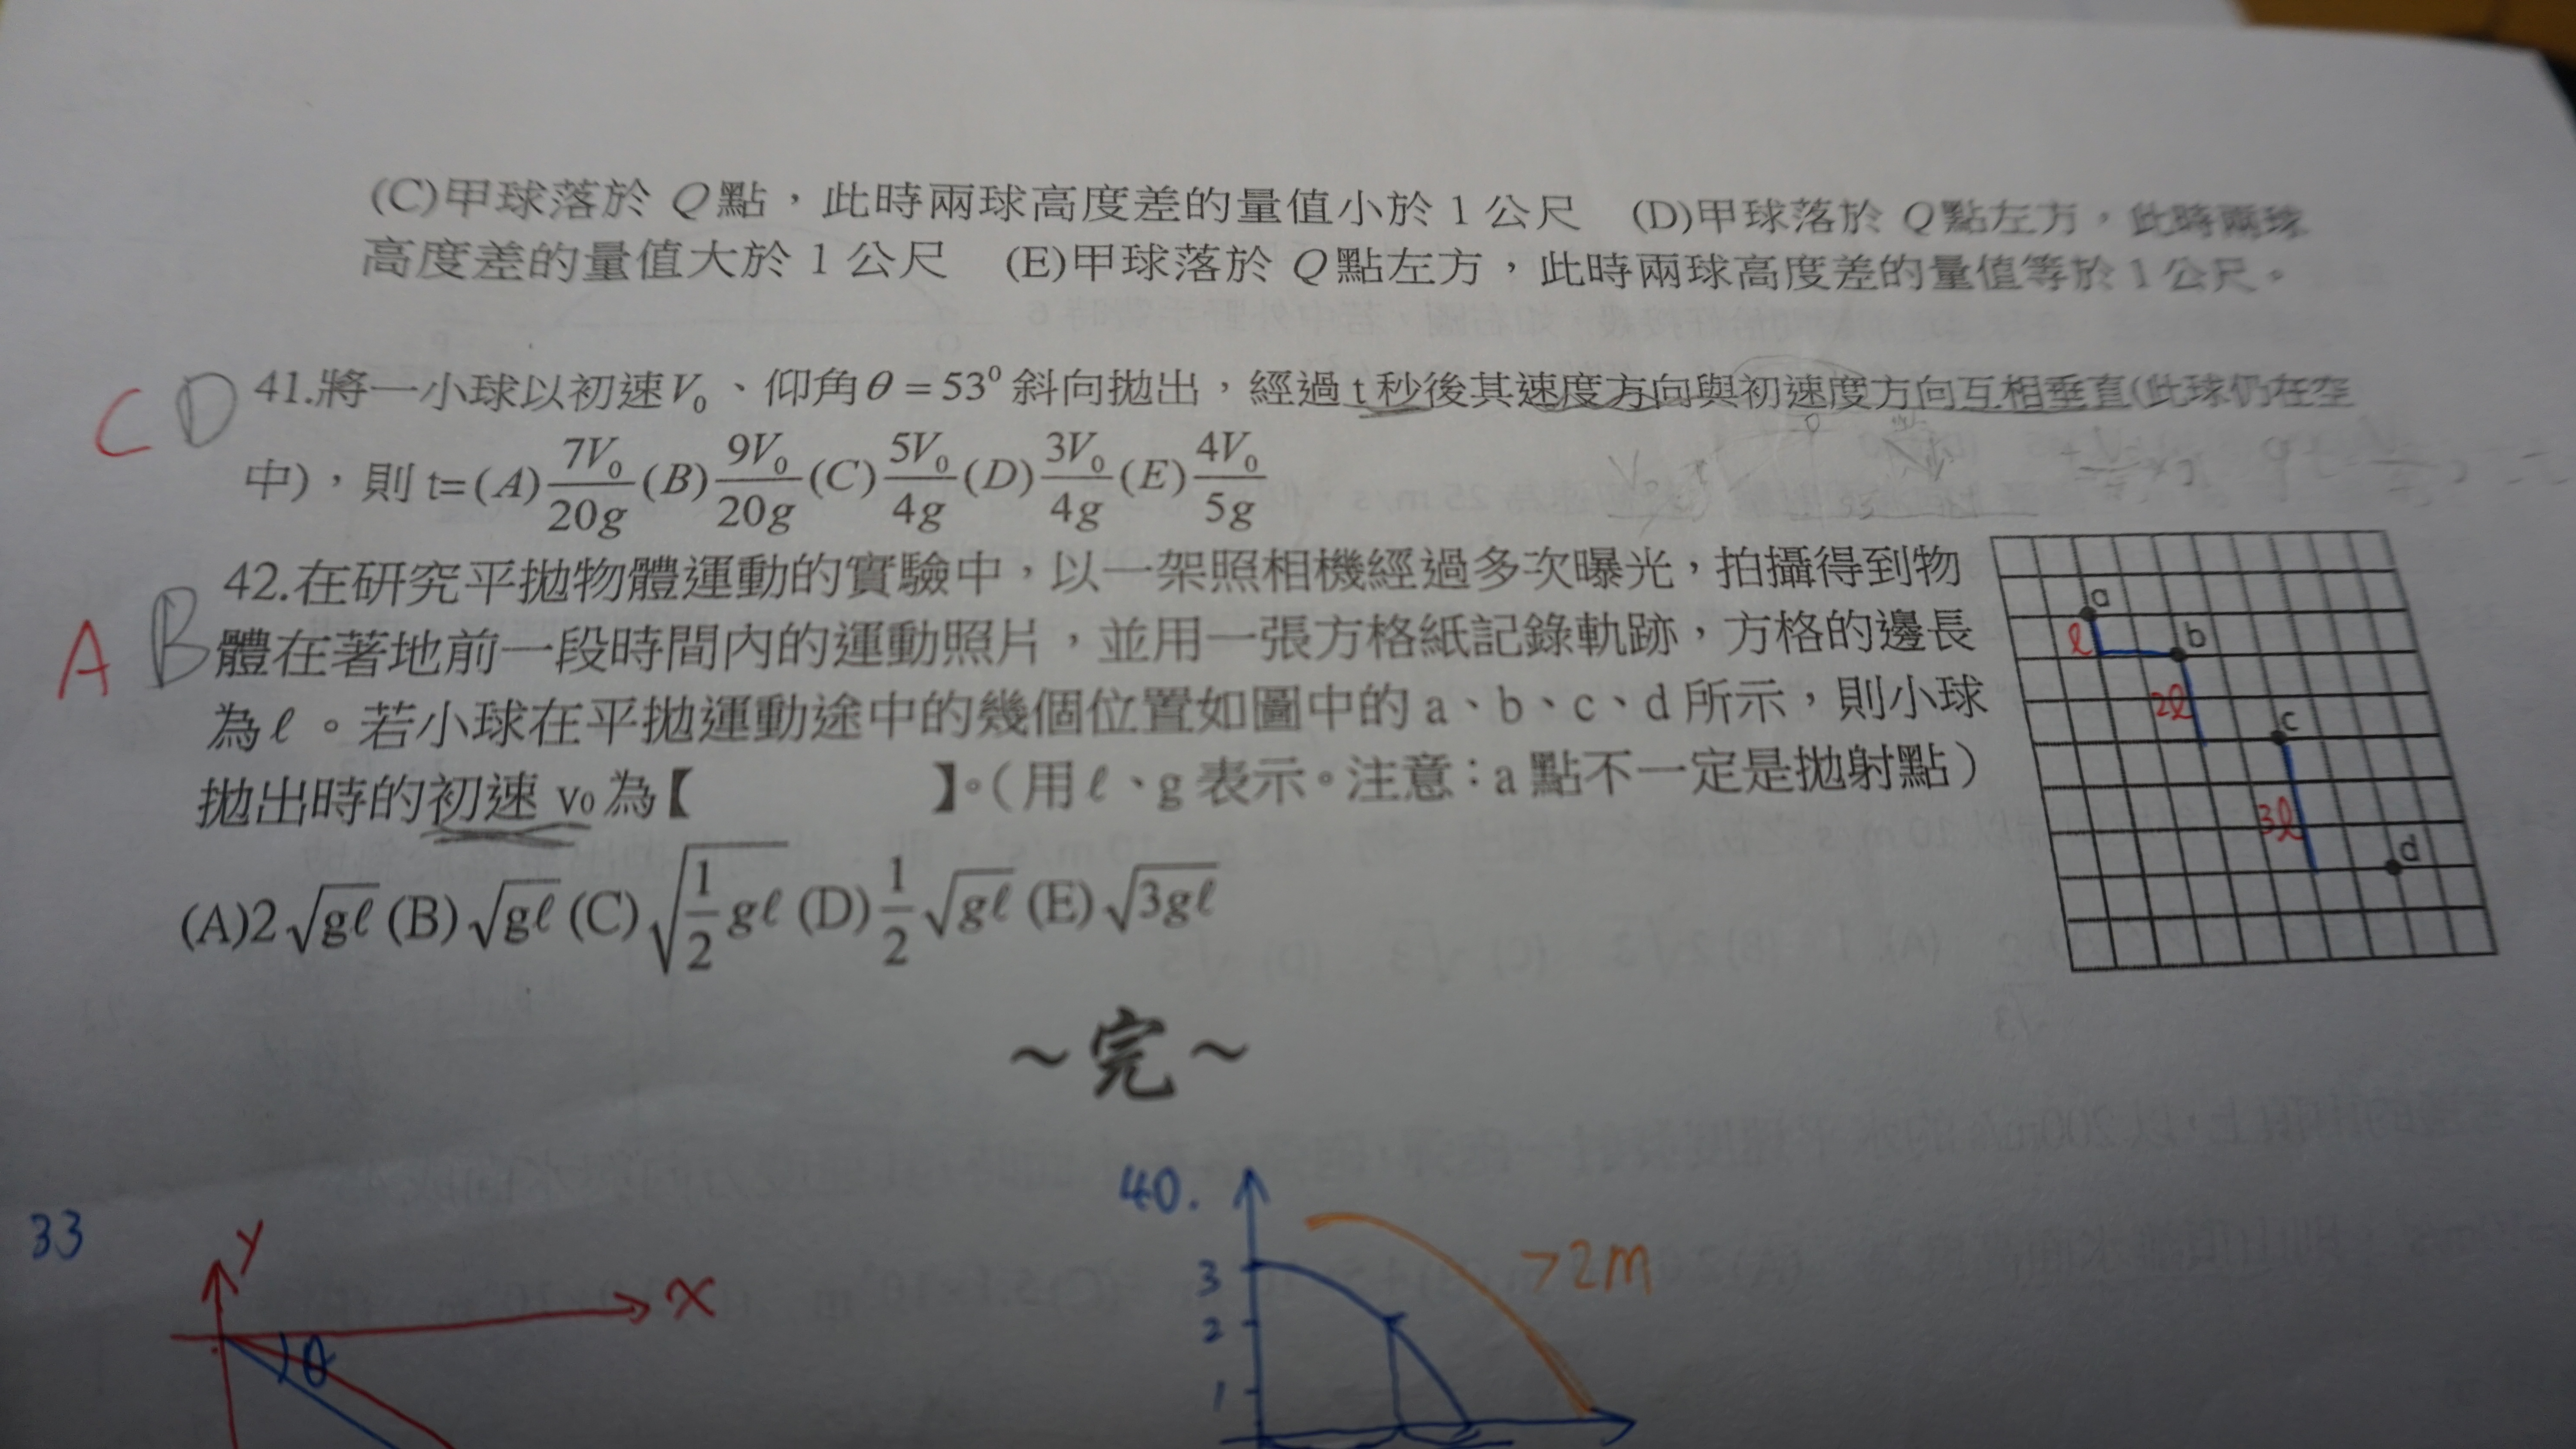 (C)甲球落於 Q點，此時兩球高度差的量值小於 1 公尺 (D)甲球落於 Q點左方，此時兩球
高度差的量值大於 1 公尺 (E)甲球落於 Q點左方，此時兩球高度差的量值等於 1 公尺。
C D 41.將一小球以初速V₀、仰角θ = 53⁰斜向拋出，經過 t 秒後其速度方向與初速度方向互相垂直(此球仍在空
中)，則 t= (A) 7V₀/20g (B) 9V₀/20g (C) 5V₀/4g (D) 3V₀/4g (E) 4V₀/5g
A B 42.在研究平拋物體運動的實驗中，以一架照相機經過多次曝光，拍攝得到物
體在著地前一段時間內的運動照片，並用一張方格紙記錄軌跡，方格的邊長
為ℓ。若小球在平拋運動途中的幾個位置如圖中的 a、b、c、d 所示，則小球
拋出時的初速 v₀ 為【 】。（用ℓ、g 表示。注意：a 點不一定是拋射點）
(A)2√gℓ (B)√gℓ (C)√(1/2 gℓ) (D)1/2 √gℓ (E)√3gℓ
a
ℓ
b
2ℓ
c
3ℓ
d
~完~
33
y
x
θ
40.
3
2
1
>2m